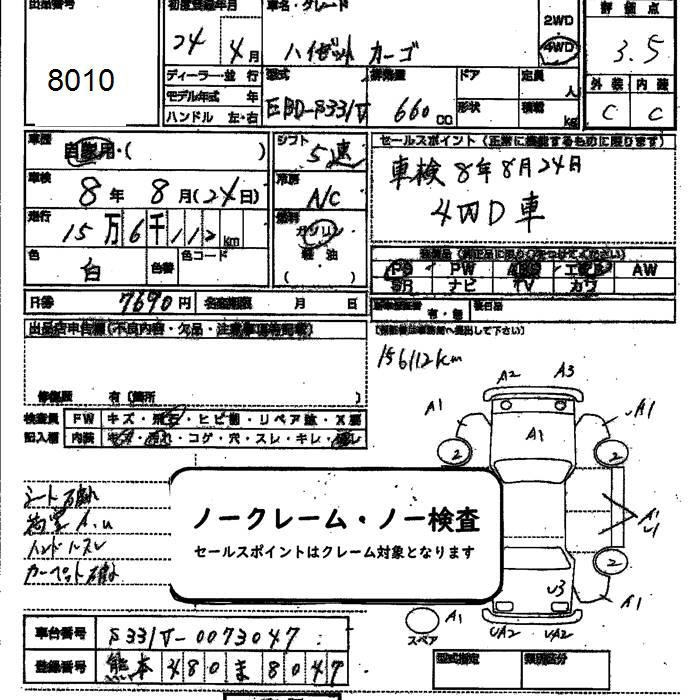 出品番号 初度登録年月 車名・グレード 評価点
8010
24年 4月
ハイゼット カーゴ
2WD
4WD
3.5
ディーラー・並行 型式 排気量 ドア 定員 人
モデル年式 年
ハンドル 左・右
EBD-S331V 660cc 形状 積載 kg
外装 内装
C C
車歴 自家用・( )
シフト 5速
セールスポイント (正常に機能するものに限ります)
車検 8年 8月(24日)
冷房 A/C
車検8年8月24日
4WD車
走行 15万6千112km
燃料 ガソリン
軽油
( )
色 白 色番 色コード
PS PW ABS エアB AW
SR ナビ TV カワ
R券 7690円 名変期限 月 日
有・無 後日品
出品店申告欄(不良内容・欠品・注意事項等記載)
156112km
修復歴 有(箇所 )
検査員 FW キズ・飛石・ヒビ割・リペア跡・X要
記入欄 内装 キズ・汚れ・コゲ・穴・スレ・キレ・
A2 A3
A1 A1
A1
2 2
シート汚れ
荷室 A.U
ハンドルスレ
カーペット汚れ
ノークレーム・ノー検査
セールスポイントはクレーム対象となります
A1
U1
2
U3
A1
A1
スペア
UA2 UA2
車台番号 S331V-0073047
登録番号 熊本 480 ま 8047
型式指定 類別区分